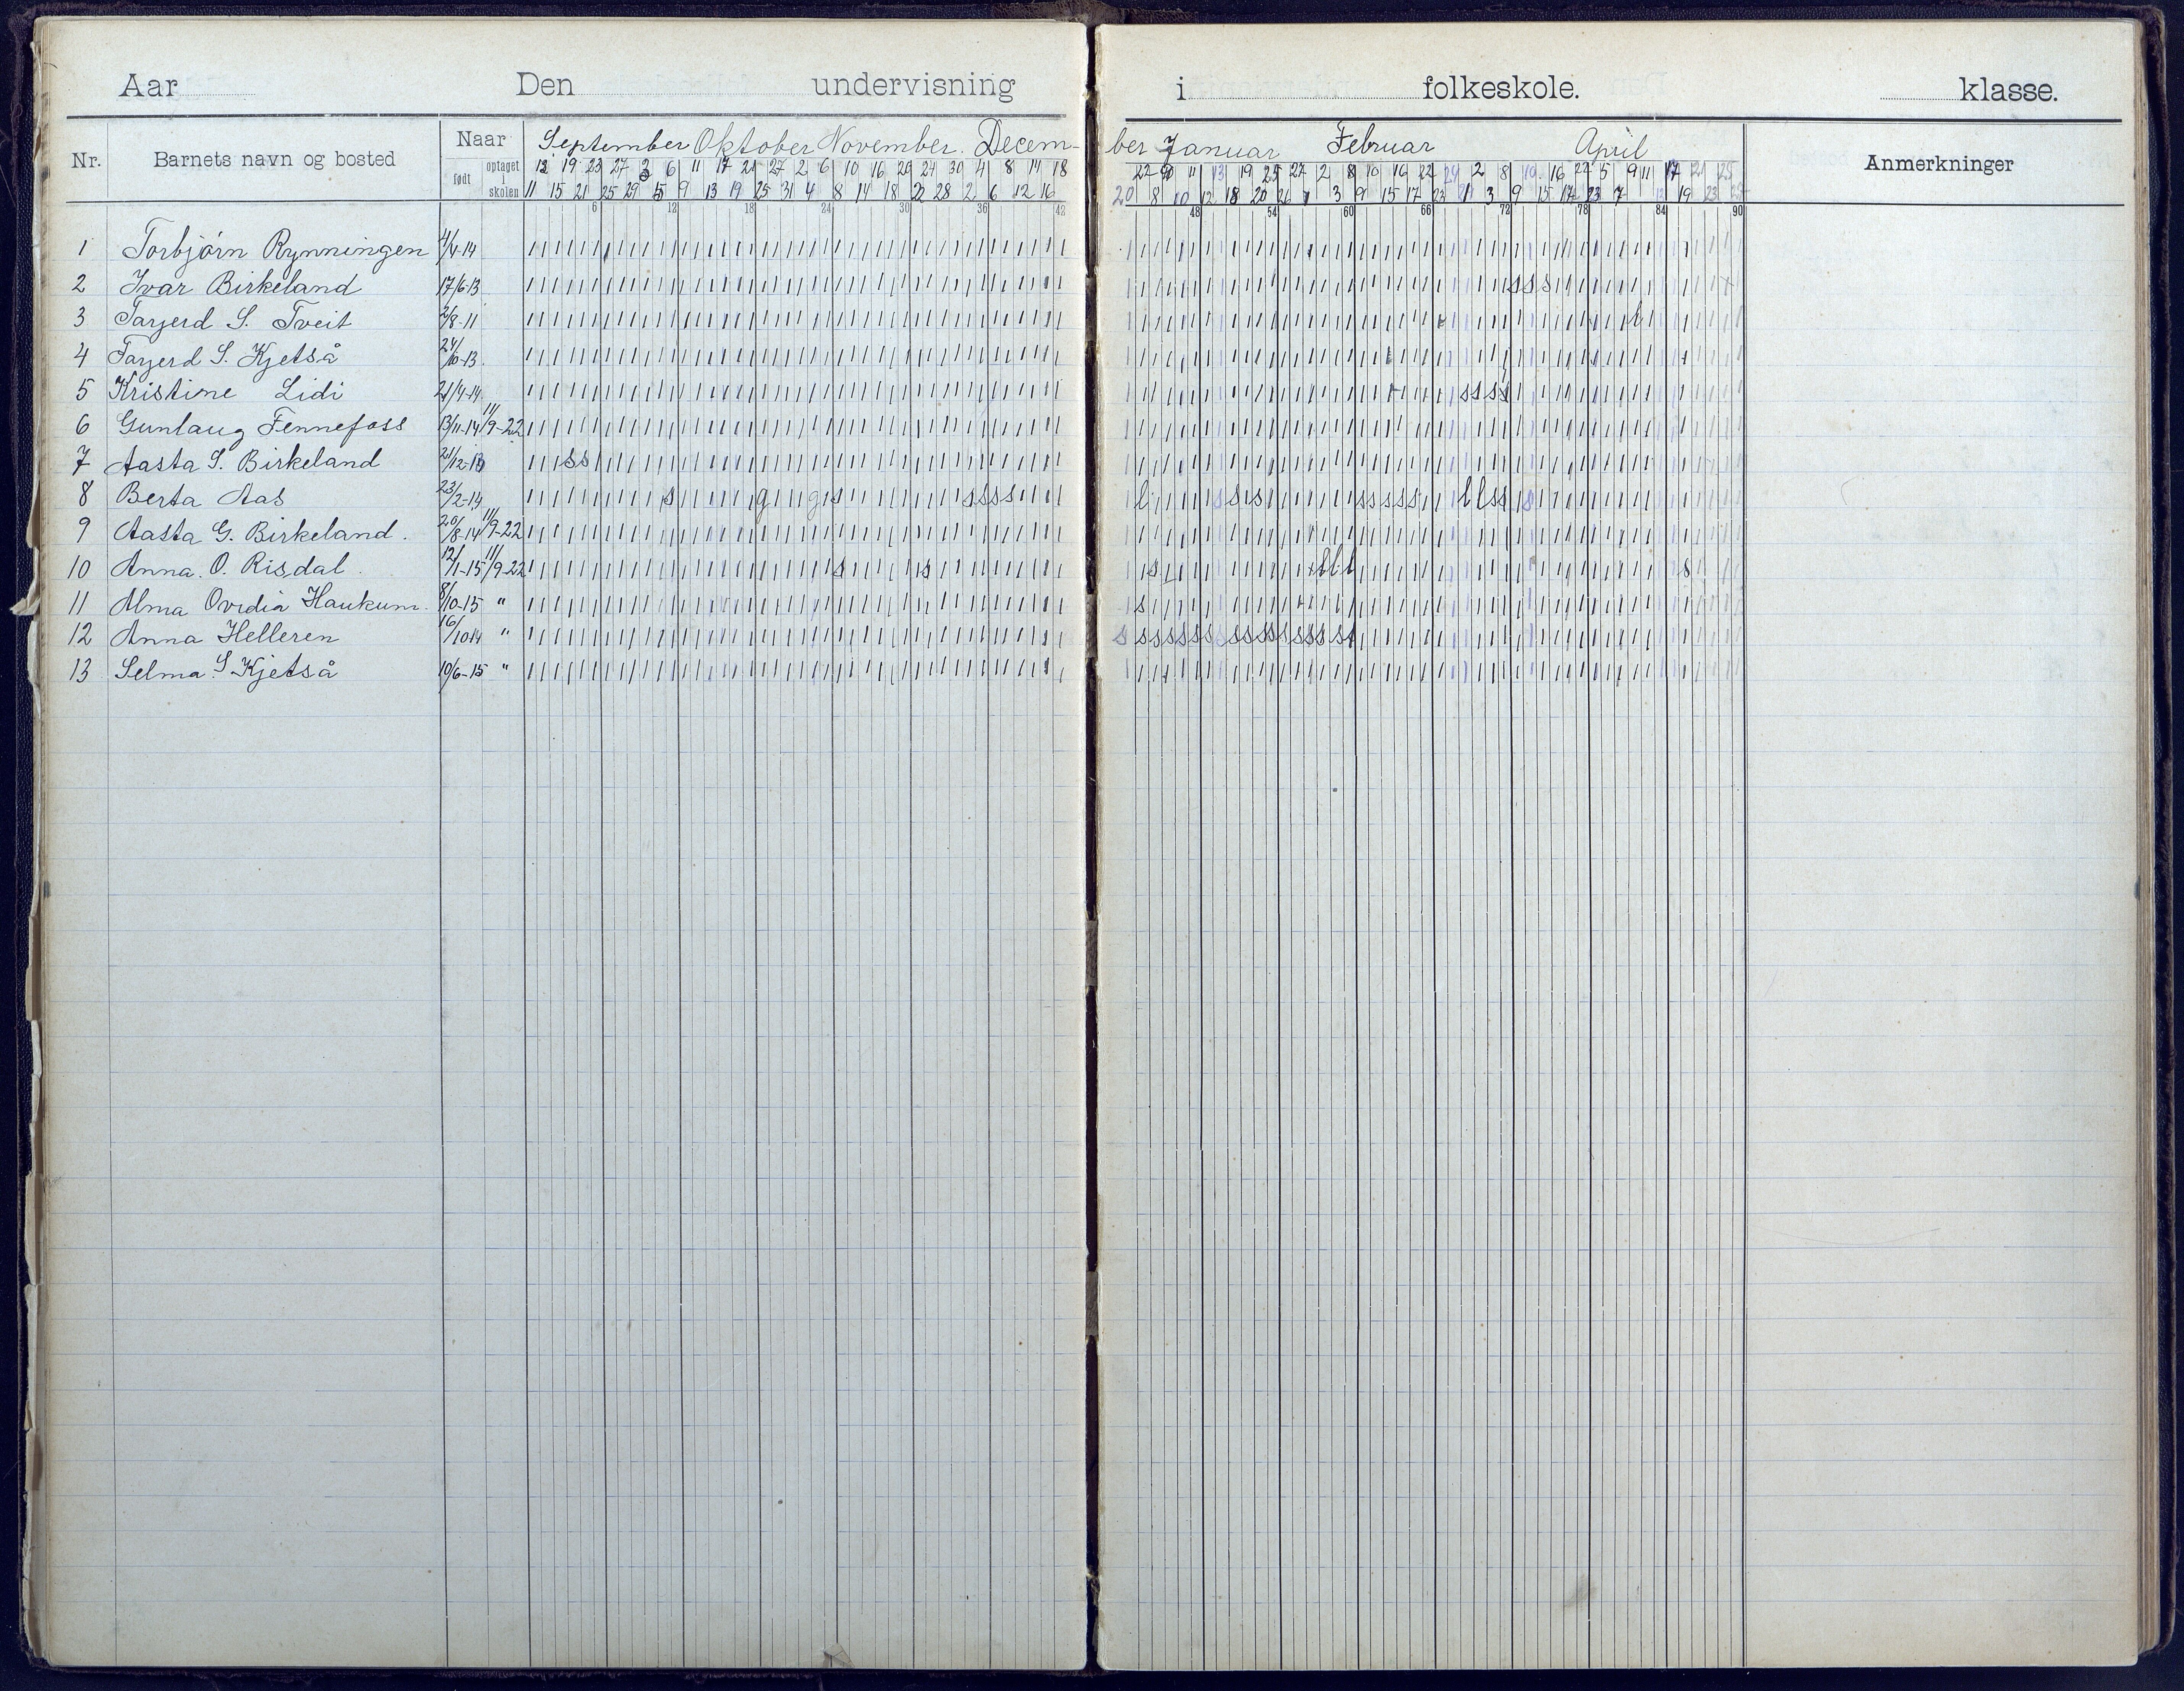 Aar Den undervisning i folkeskole. klasse.
Nr. Barnets navn og bosted Naar født optaget skolen September Oktober November. Decem- ber Januar Februar April Anmerkninger
12 19 23 27 3 6 11 17 21 27 2 6 10 16 20 24 30 4 8 14 18 22 9 11 13 19 25 27 2 8 10 16 22 24 2 8 10 16 22 5 9 11 17 21 25
11 15 21 25 29 5 9 13 19 25 31 4 8 14 18 22 28 2 6 12 16 20 8 10 12 18 20 26 1 3 9 15 17 23 1 3 9 15 17 23 7 19 23
6 12 18 24 30 36 42 48 54 60 66 72 78 84 90
1 Torbjørn Rynningen 4/4-14
2 Ivar Birkeland 17/6-13 s s s
3 Tarjerd S. Tveit 2/8-11 l
4 Tarjerd S. Kjetså 24/10-13
5 Kristine Lidi 21/4-14 s s s s
6 Gunlaug Fennefoss 13/11-14 11/9-22
7 Aasta S. Birkeland 21/12-13 s s
8 Berta Aas 23/2-14 s g g s s s s s l s s s s s s s s s l l s s s
9 Aasta G. Birkeland. 20/8-14 11/9-22
10 Anna. O. Risdal. 12/1-15 11/9-22 s s s l l l s
11 Alma Ovidia Haukum. 8/10-15 " s
12 Anna Helleren 16/10 14 " s s s s s s s s s s s s s s s s s
13 Selma S. Kjetså 10/6-15 "